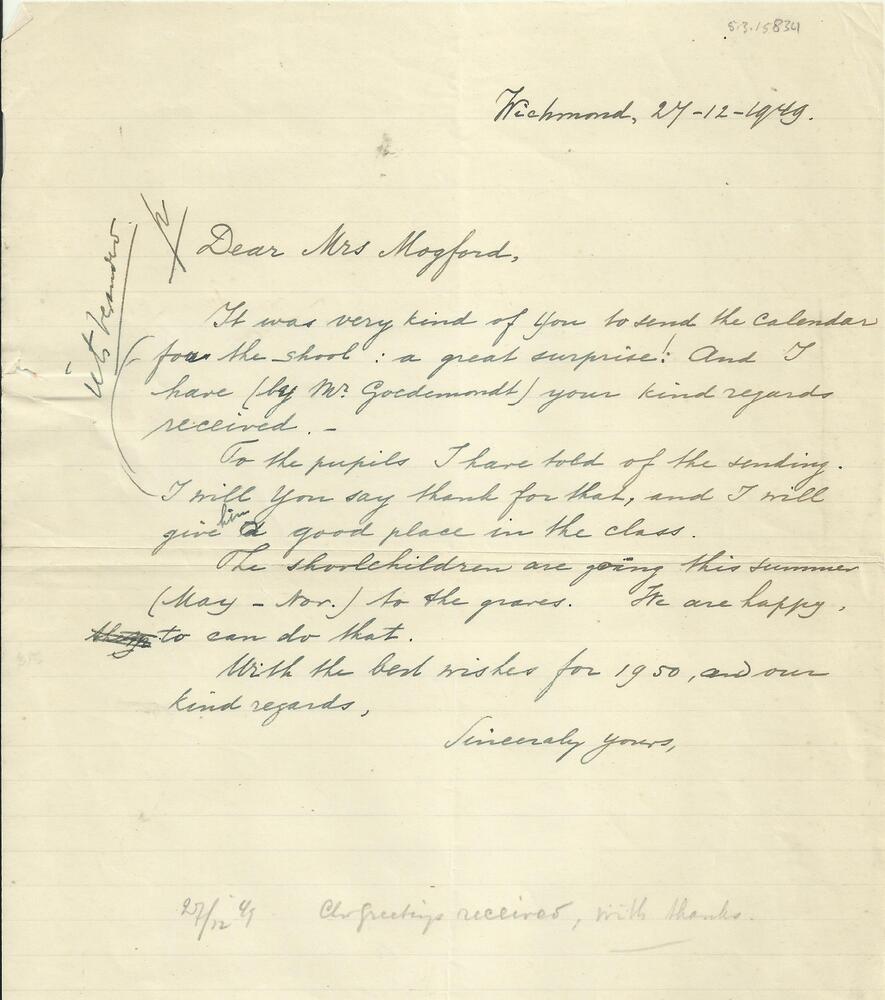 5.3.15834
Wichmond, 27-12-1949.
Dear Mrs Mogford,
It was very kind of You to send the calendar
for the shool : a great surprise! And I
have (by Mr. Goedemondt) your kind regards
received. -
To the pupils I have told of the sending.
I will You say thank for that, and I will
give him a good place in the class.
The shoolchildren are going this summer
(May - Nov.) to the graves. We are happy,
to can do that.
With the best wishes for 1950, and our
kind regards,
Sincerely yours,
27/12 49 Chr Greetings received, with thanks.